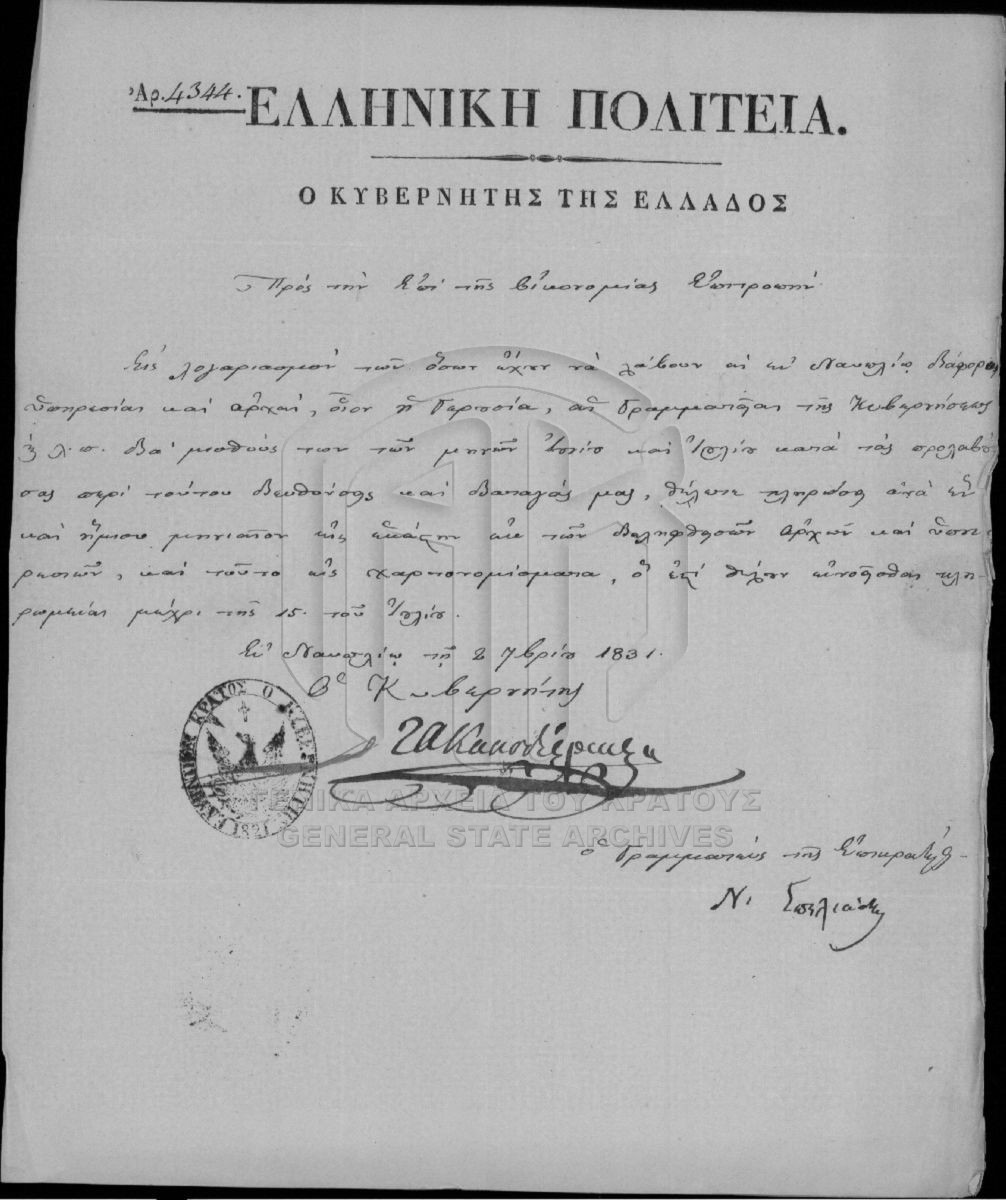 Ἀρ. 4344.
ΕΛΛΗΝΙΚΗ ΠΟΛΙΤΕΙΑ.
Ο ΚΥΒΕΡΝΗΤΗΣ ΤΗΣ ΕΛΛΑΔΟΣ
Πρὸς τὴν Ἐπὶ τῆς Οἰκονομίας Ἐπιτροπήν
Εἰς λογαριασμὸν τῶν ὅσων ἔχουν νὰ λάβουν αἱ ἐν Ναυπλίῳ διάφοροι
ὑπηρεσίαι καὶ ἀρχαί, οἷον ἡ Γερουσία, αἱ Γραμματεῖαι τῆς Κυβερνήσεως
κ.λ.π. διὰ μισθούς των τῶν μηνῶν Ἰουνίου καὶ Ἰουλίου κατὰ τὰς προλαβού-
σας περὶ τούτου διευθύνσεις καὶ διαταγάς μας, θέλετε πληρώσει ἀνὰ ἓν
καὶ ἥμισυ μηνιαῖον εἰς ἑκάστην ἐκ τῶν διαληφθεισῶν ἀρχῶν καὶ ὑπη-
ρεσιῶν, καὶ τοῦτο εἰς χαρτονομίσματα, ὅ ἐστι θέλουν εἶσθαι πλη-
ρωμέναι μέχρι τῆς 15. τοῦ Ἰουλίου.
Ἐν Ναυπλίῳ τῇ 2 7βρίου 1831.
Ὁ Κυβερνήτης
ΙΑ Καποδίστριας
ΕΛΛΗΝΙΚΟΝ ΚΡΑΤΟΣ Ο ΚΥΒΕΡΝΗΤΗΣ
1821
ΓΕΝΙΚΑ ΑΡΧΕΙΑ ΤΟΥ ΚΡΑΤΟΥΣ
GENERAL STATE ARCHIVES
ὁ Γραμματεὺς τῆς Ἐπικρατείας
Ν. Σπηλιάδης